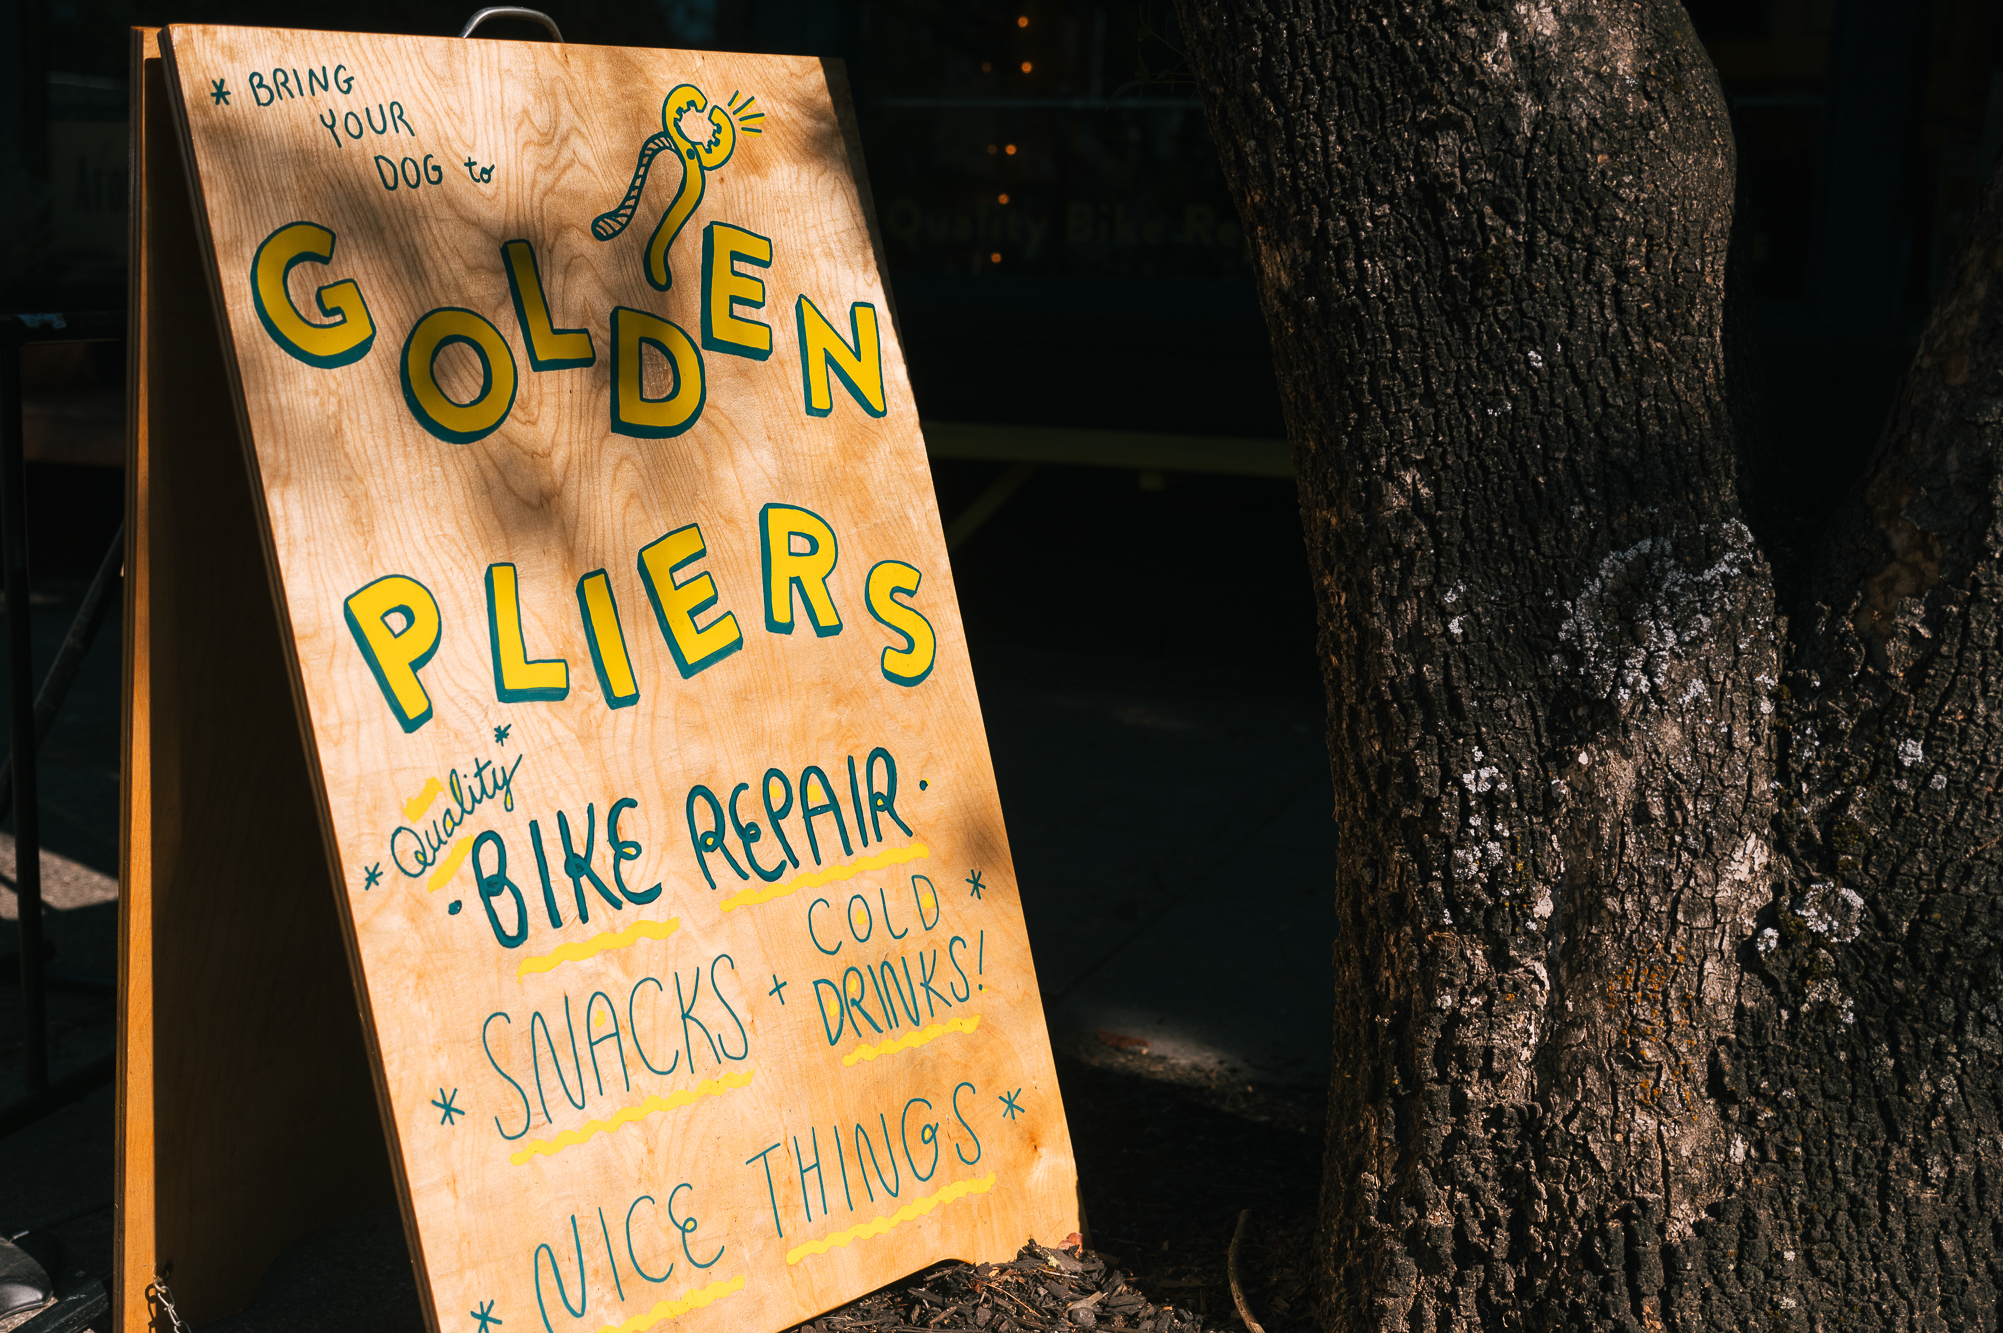 * BRING
YOUR
DOG to
GOLDEN
PLIERS
* Quality *
· BIKE REPAIR ·
SNACKS + COLD DRINKS! *
* NICE THINGS *
*
Quality Bike Re